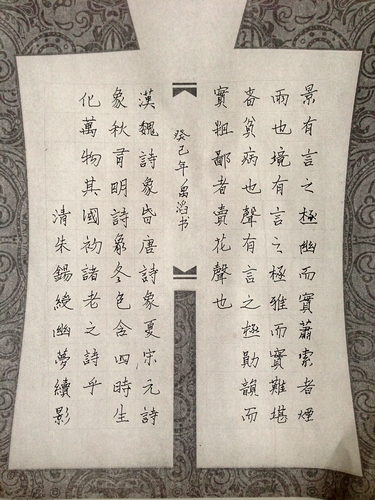 景有言之極幽而實蕭索者煙
雨也境有言之極雅而實難堪
者貧病也聲有言之極勛韻而
實粗鄙者賣花聲也
癸巳年禹滔书
漢魏詩象旾唐詩象夏宋元詩
象秋有明詩象冬包含四時生
化萬物其國初諸老之詩乎
清朱錫綬幽夢續影